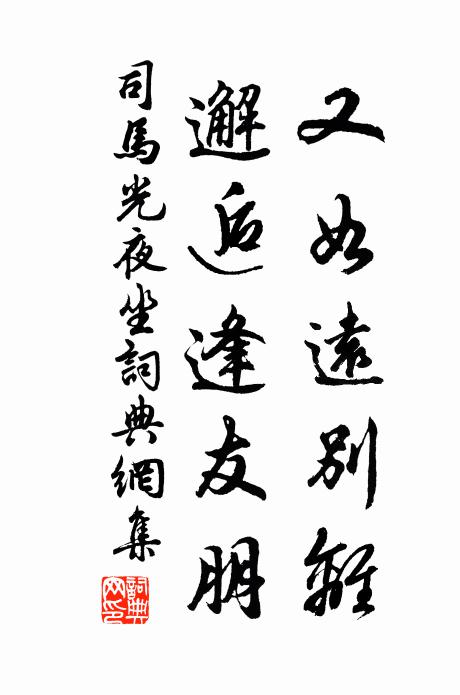 又如遠別離
邂逅逢友朋
司馬光夜坐詞典網集
詞典网印